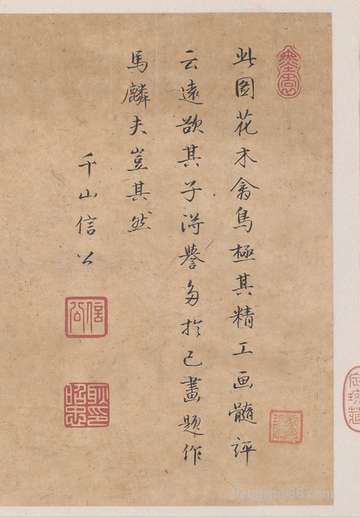 此圖花木禽鳥極其精工画髓評
云遠欲其子得譽多於己畫題作
馬麟夫豈其然
千山信公
信公